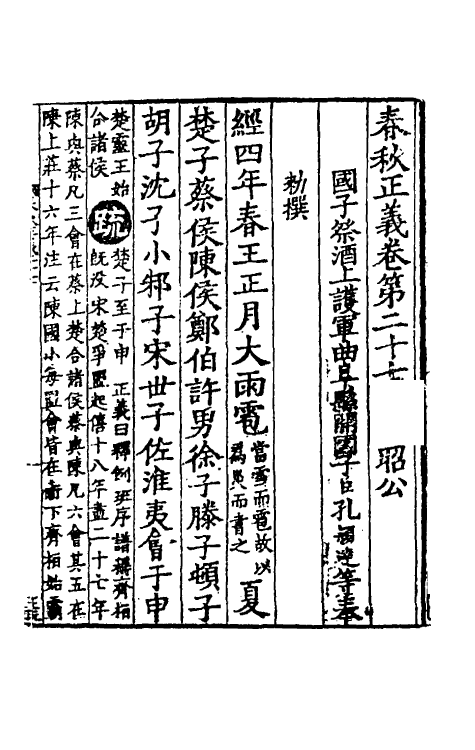 春秋正義卷第二十七 昭公
國子祭酒上護軍曲阜縣開國子臣孔穎達等奉
勑撰
經四年春王正月大雨雹當雪而雹故以爲災而書之夏
楚子蔡侯陳侯鄭伯許男徐子滕子頓子
胡子沈子小邾子宋世子佐淮夷會于申
楚靈王始合諸侯疏楚子至于申 正義曰釋例班序譜稱齊桓
既没宋楚爭盟起僖十八年盡二十七年
陳與蔡凡三會在蔡上楚合諸侯蔡與陳凡六會其五在
陳上莊十六年注云陳國小每盟會皆在衛下齊桓始霸